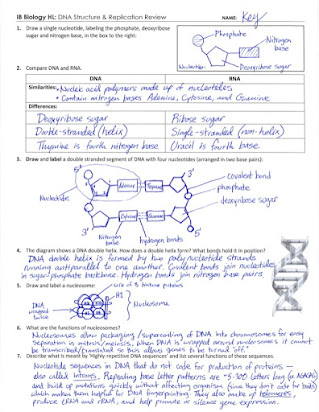 IB Biology HL: DNA Structure & Replication Review
NAME: Key
1. Draw a single nucleotide, labeling the phosphate, deoxyribose
sugar and nitrogen base, in the box to the right:
Phosphate
Nitrogen
base
Nucleotide
Deoxyribose Sugar
2. Compare DNA and RNA.
DNA
RNA
Similarities: • Nucleic acid polymers made up of nucleotides
• Contain nitrogen bases Adenine, Cytosine, and Guanine
Differences:
Deoxyribose sugar
Ribose sugar
Double-stranded (helix)
Single-stranded (non-helix)
Thymine is fourth nitrogen base
Uracil is fourth base
3. Draw and label a double stranded segment of DNA with four nucleotides (arranged in two base pairs):
5'
3'
Covalent bond
phosphate
deoxyribose sugar
Nucleotide
Adenine
Thymine
Cytosine
Guanine
3'
5'
Nitrogen
base
hydrogen bonds
4. The diagram shows a DNA double helix. How does a double helix form? What bonds hold it in position?
DNA double helix is formed by two polynucleotide strands
running antiparallel to one another. Covalent bonds join nucleotides
in sugar/phosphate backbone. Hydrogen bonds join nitrogen base pairs.
5. Draw and label a nucleosome:
core of 8 histone proteins
H1
DNA
wrapped
twice
Nucleosome
6. What are the functions of nucleosomes?
Nucleosomes allow packaging/supercoiling of DNA into chromosomes for easy
separation in mitosis/meiosis. When DNA is wrapped around nucleosomes it cannot
be transcribed/translated so this allows genes to be turned "off."
7. Describe what is meant by "highly repetitive DNA sequences" and list several functions of those sequences.
Nucleotide sequences in DNA that do not code for production of proteins —
also called introns. Repeating base letter patterns are ~5-300 letters long
and build up mutations quickly without affecting organism (since they don't code for traits)
which makes them helpful for DNA fingerprinting. They also make up telomeres,
produce tRNA and rRNA, and help promote or silence gene expression.